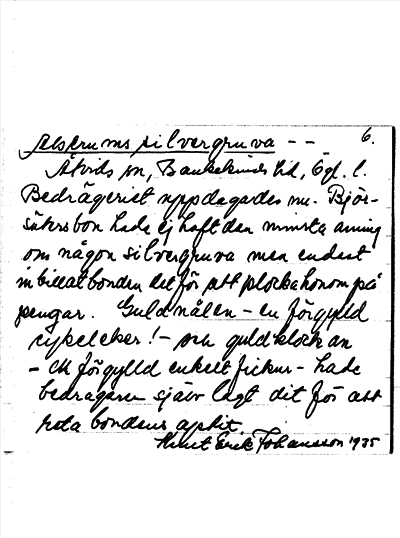 Alskrums silvergruva - - 6.
Åtvids sn, Bankekinds hd, Ögl. l.
Bedrägeriet uppdagades nu. Björ-
säkersbon hade ej haft den minsta aning
om någon silvergruva men endast
inbillat bonden det för att plocka honom på
pengar. Guldnålen - en förgylld
cykeleker! - och guldklockan
- ett förgylld enkelt fickur - hade
bedragaren själv lagt dit för att
reta bondens aptit.
Knut Erik Johansson 1935